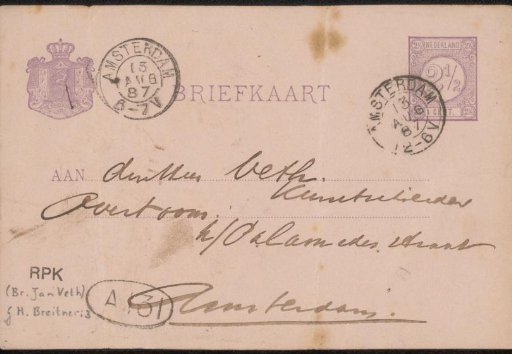 AMSTERDAM
15
AUG
87
6-7V
BRIEFKAART
NEDERLAND
2½
CENT
AMSTERDAM
87
12-6V
AAN den Heer Veth.
Kunstschilder
Overtoom.
h/
straat
Amsterdam.
RPK
(Br. Jan Veth)
G.H. Breitner: 3
A 31